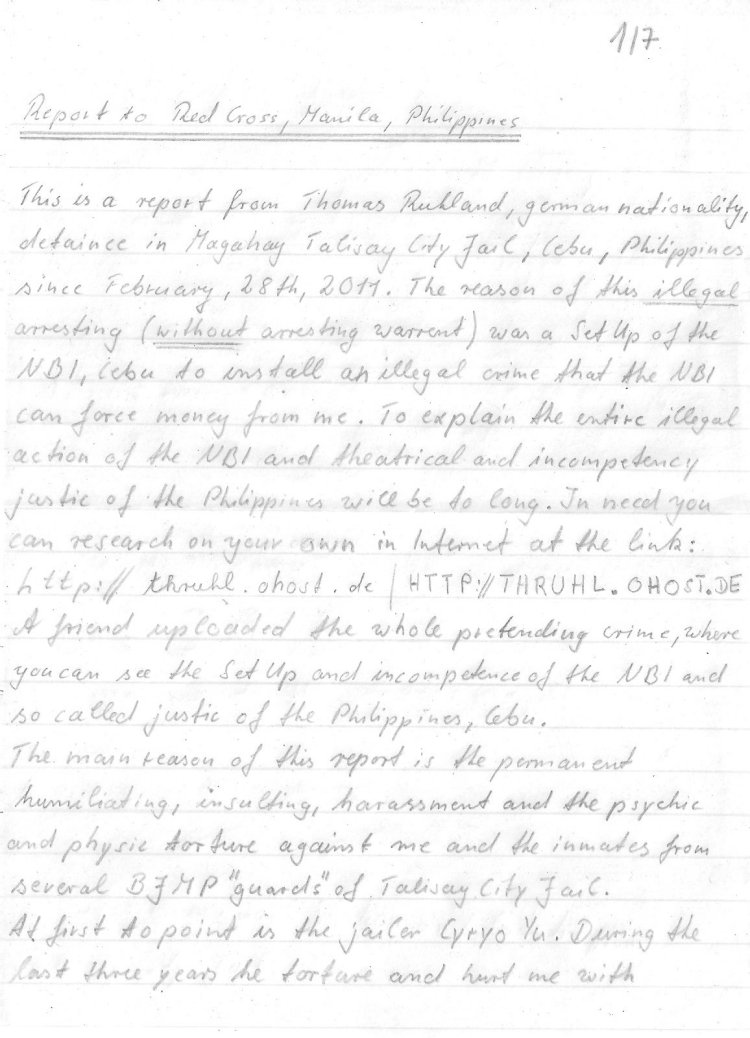 1/7
Report to Red Cross, Manila, Philippines
This is a report from Thomas Ruhland, german nationality,
detainee in Magahay Talisay City Jail, Cebu, Philippines
since February, 28th, 2011. The reason of this illegal
arresting (without arresting warrent) was a Set Up of the
NBI, Cebu to install an illegal crime that the NBI
can force money from me. To explain the entire illegal
action of the NBI and theatrical and incompetency
justic of the Philippines will be to long. In need you
can research on your own in Internet at the link:
http:// thruhl.ohost.de | HTTP://THRUHL.OHOST.DE
A friend uploaded the whole pretending crime, where
you can see the Set Up and incompetence of the NBI and
so called justic of the Philippines, Cebu.
The main reason of this report is the permanent
humiliating, insulting, harassment and the psychic
and physic torture against me and the inmates from
several BJMP "guards" of Talisay City Jail.
At first to point is the jailer Cyryo Yu. During the
last three years he torture and hurt me with